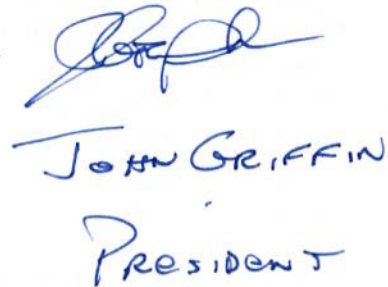 John Griffin
President